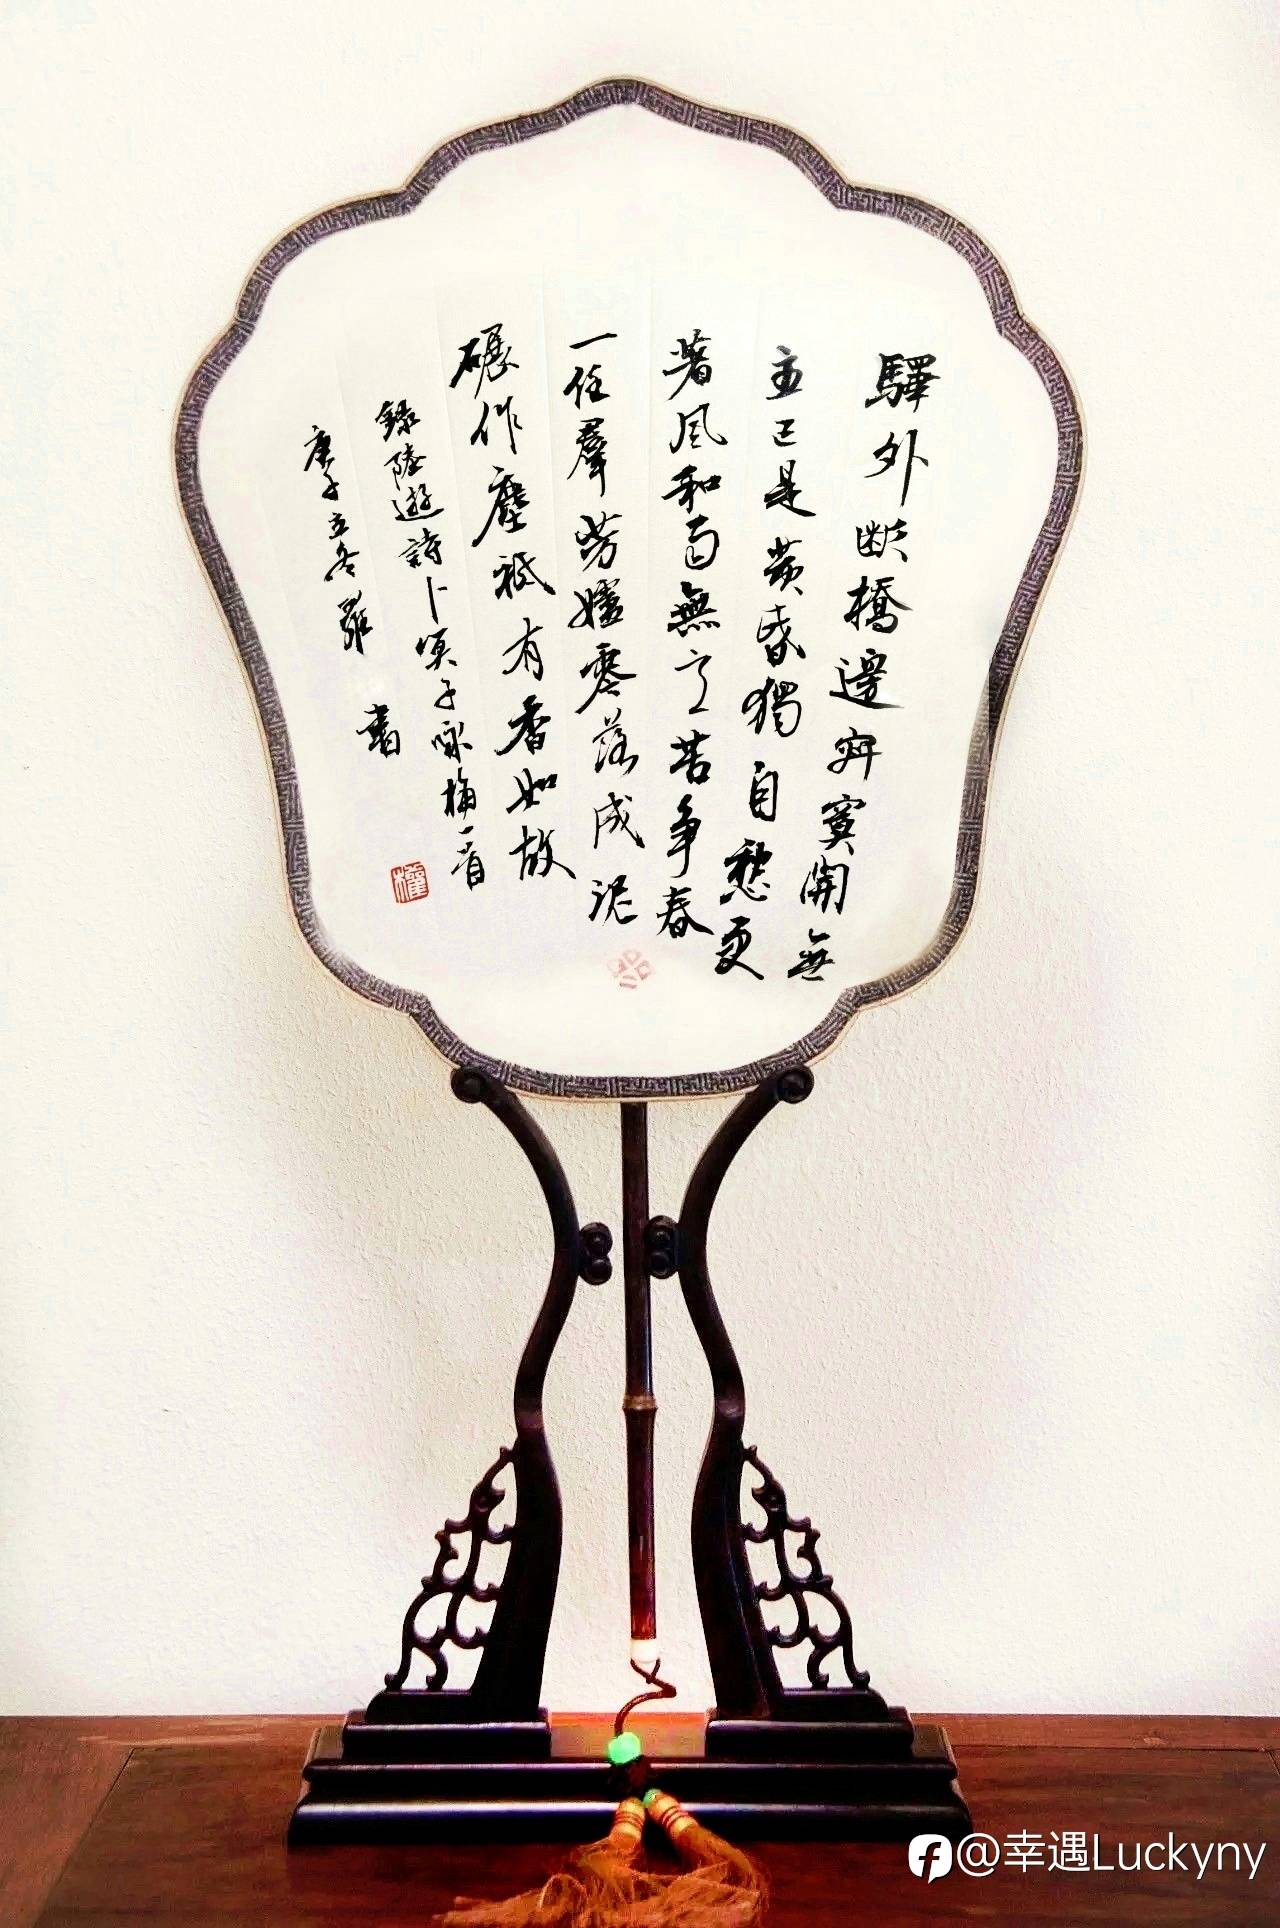 驛外断橋邊寂寞開無
主已是黄昏獨自愁更
著風和雨無意苦争春
一任羣芳妒零落成泥
碾作塵祇有香如故
録陸遊詩卜算子咏梅一首
庚子立冬羅 書
@幸遇Luckyny